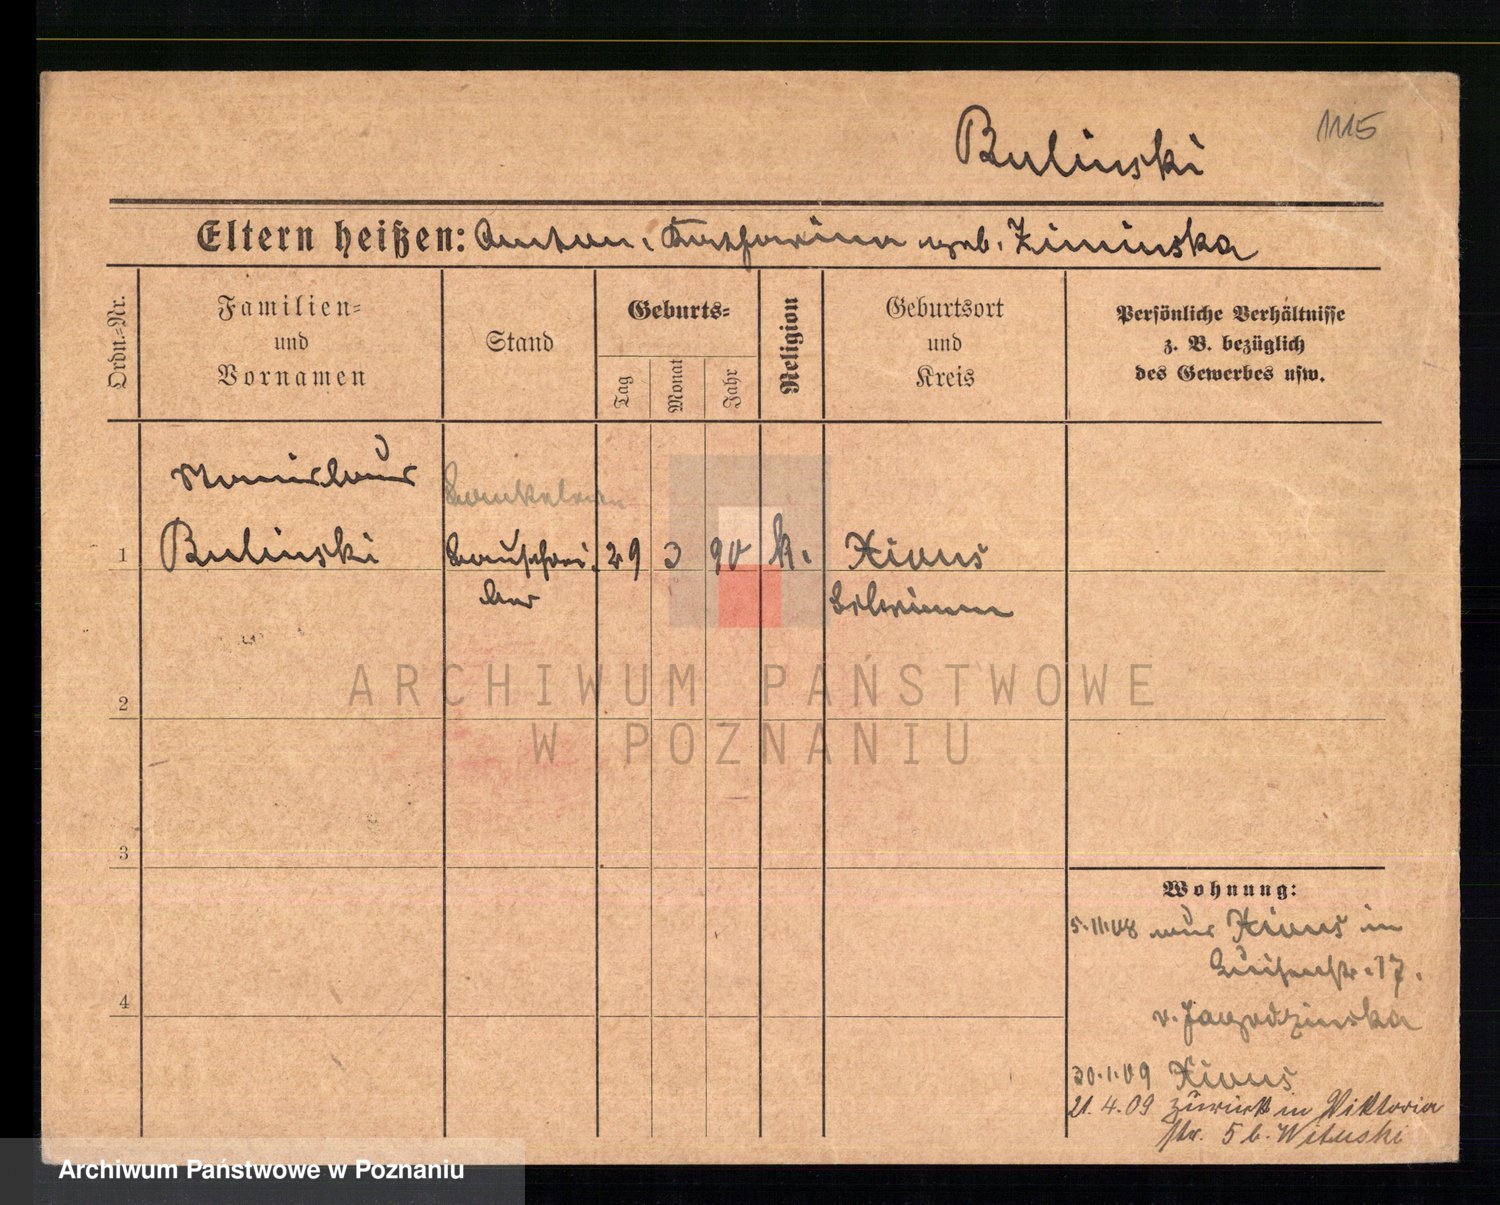 Bulinski
1115
Eltern heißen: Anton, Katharina geb. Ziminska
Ordn.-Nr.
Familien-
und
Vornamen
Stand
Geburts-
Tag
Monat
Jahr
Religion
Geburtsort
und
Kreis
Persönliche Verhältnisse
z. B. bezüglich
des Gewerbes usw.
Stanislaus
1 Bulinski
Bauschrei-
ber
29 3 90 k. Xions
Schrimm
2
3
4
Wohnung:
5.11.08 aus Xions in
Luisenstr. 17.
v. Jagodzinska
30.1.09 Xions
21.4.09 zurück in Viktoria
str. 5 b. Wituski
ARCHIWUM PAŃSTWOWE
W POZNANIU
Archiwum Państwowe w Poznaniu